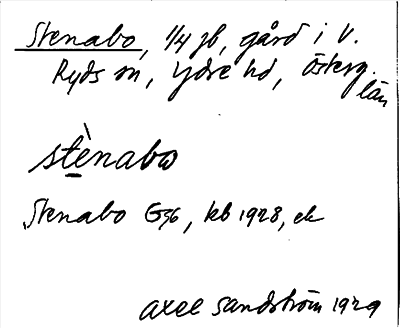 Stenabo, 1/4 jb, gård i V.
Ryds sn, Ydre hd, Österg.
län
stènabo
Stenabo G36, kb 1928, ek
Axel Sandström 1929